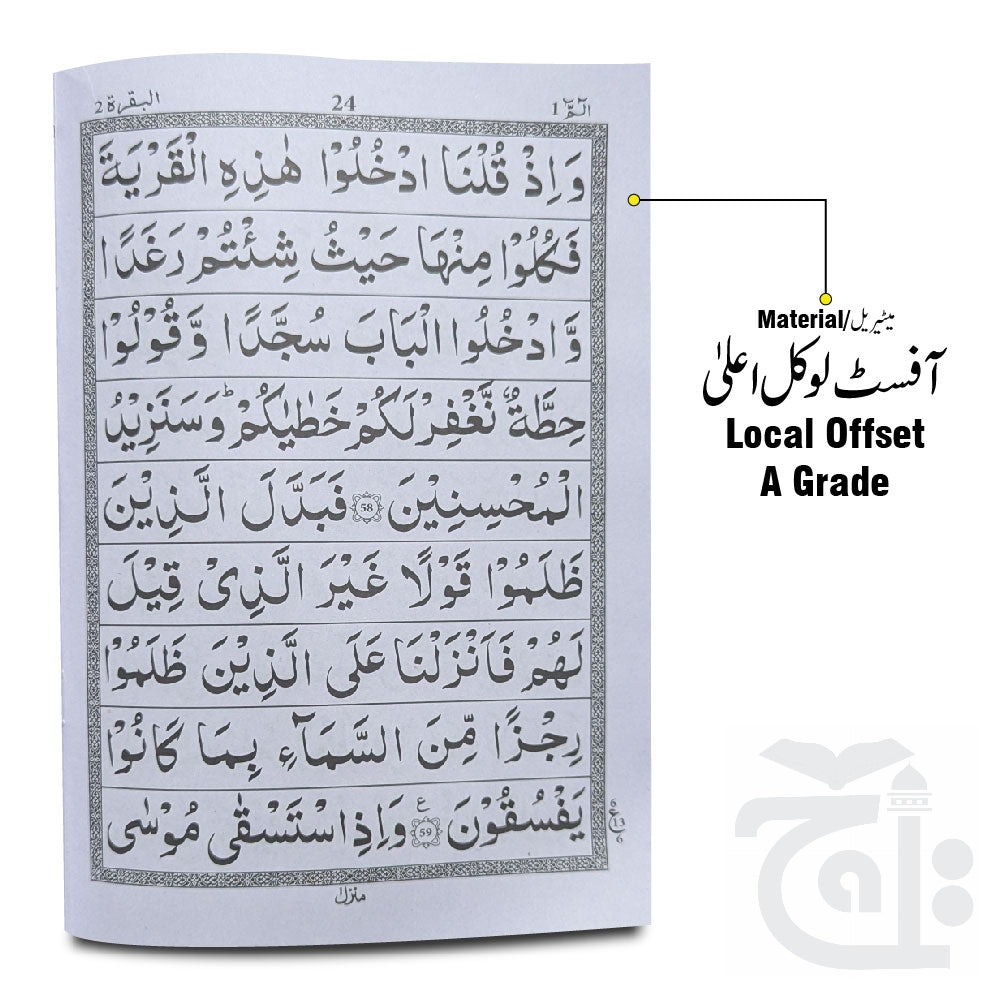 الٓمّٓ 1
24
البقرة 2
وَاِذْ قُلْنَا ادْخُلُوْا هٰذِهِ الْقَرْيَةَ
فَكُلُوْا مِنْهَا حَيْثُ شِئْتُمْ رَغَدًا
وَّادْخُلُوا الْبَابَ سُجَّدًا وَّقُوْلُوْا
حِطَّةٌ نَّغْفِرْ لَكُمْ خَطٰيٰكُمْ ؕ وَسَنَزِيْدُ
الْمُحْسِنِيْنَ 58 فَبَدَّلَ الَّذِيْنَ
ظَلَمُوْا قَوْلًا غَيْرَ الَّذِىْ قِيْلَ
لَهُمْ فَاَنْزَلْنَا عَلَى الَّذِيْنَ ظَلَمُوْا
رِجْزًا مِّنَ السَّمَآءِ بِمَا كَانُوْا
يَفْسُقُوْنَ 59 ع وَاِذِ اسْتَسْقٰى مُوْسٰى
13
منزل
Material/میٹیریل
آفسٹ لوکل اعلیٰ
Local Offset
A Grade